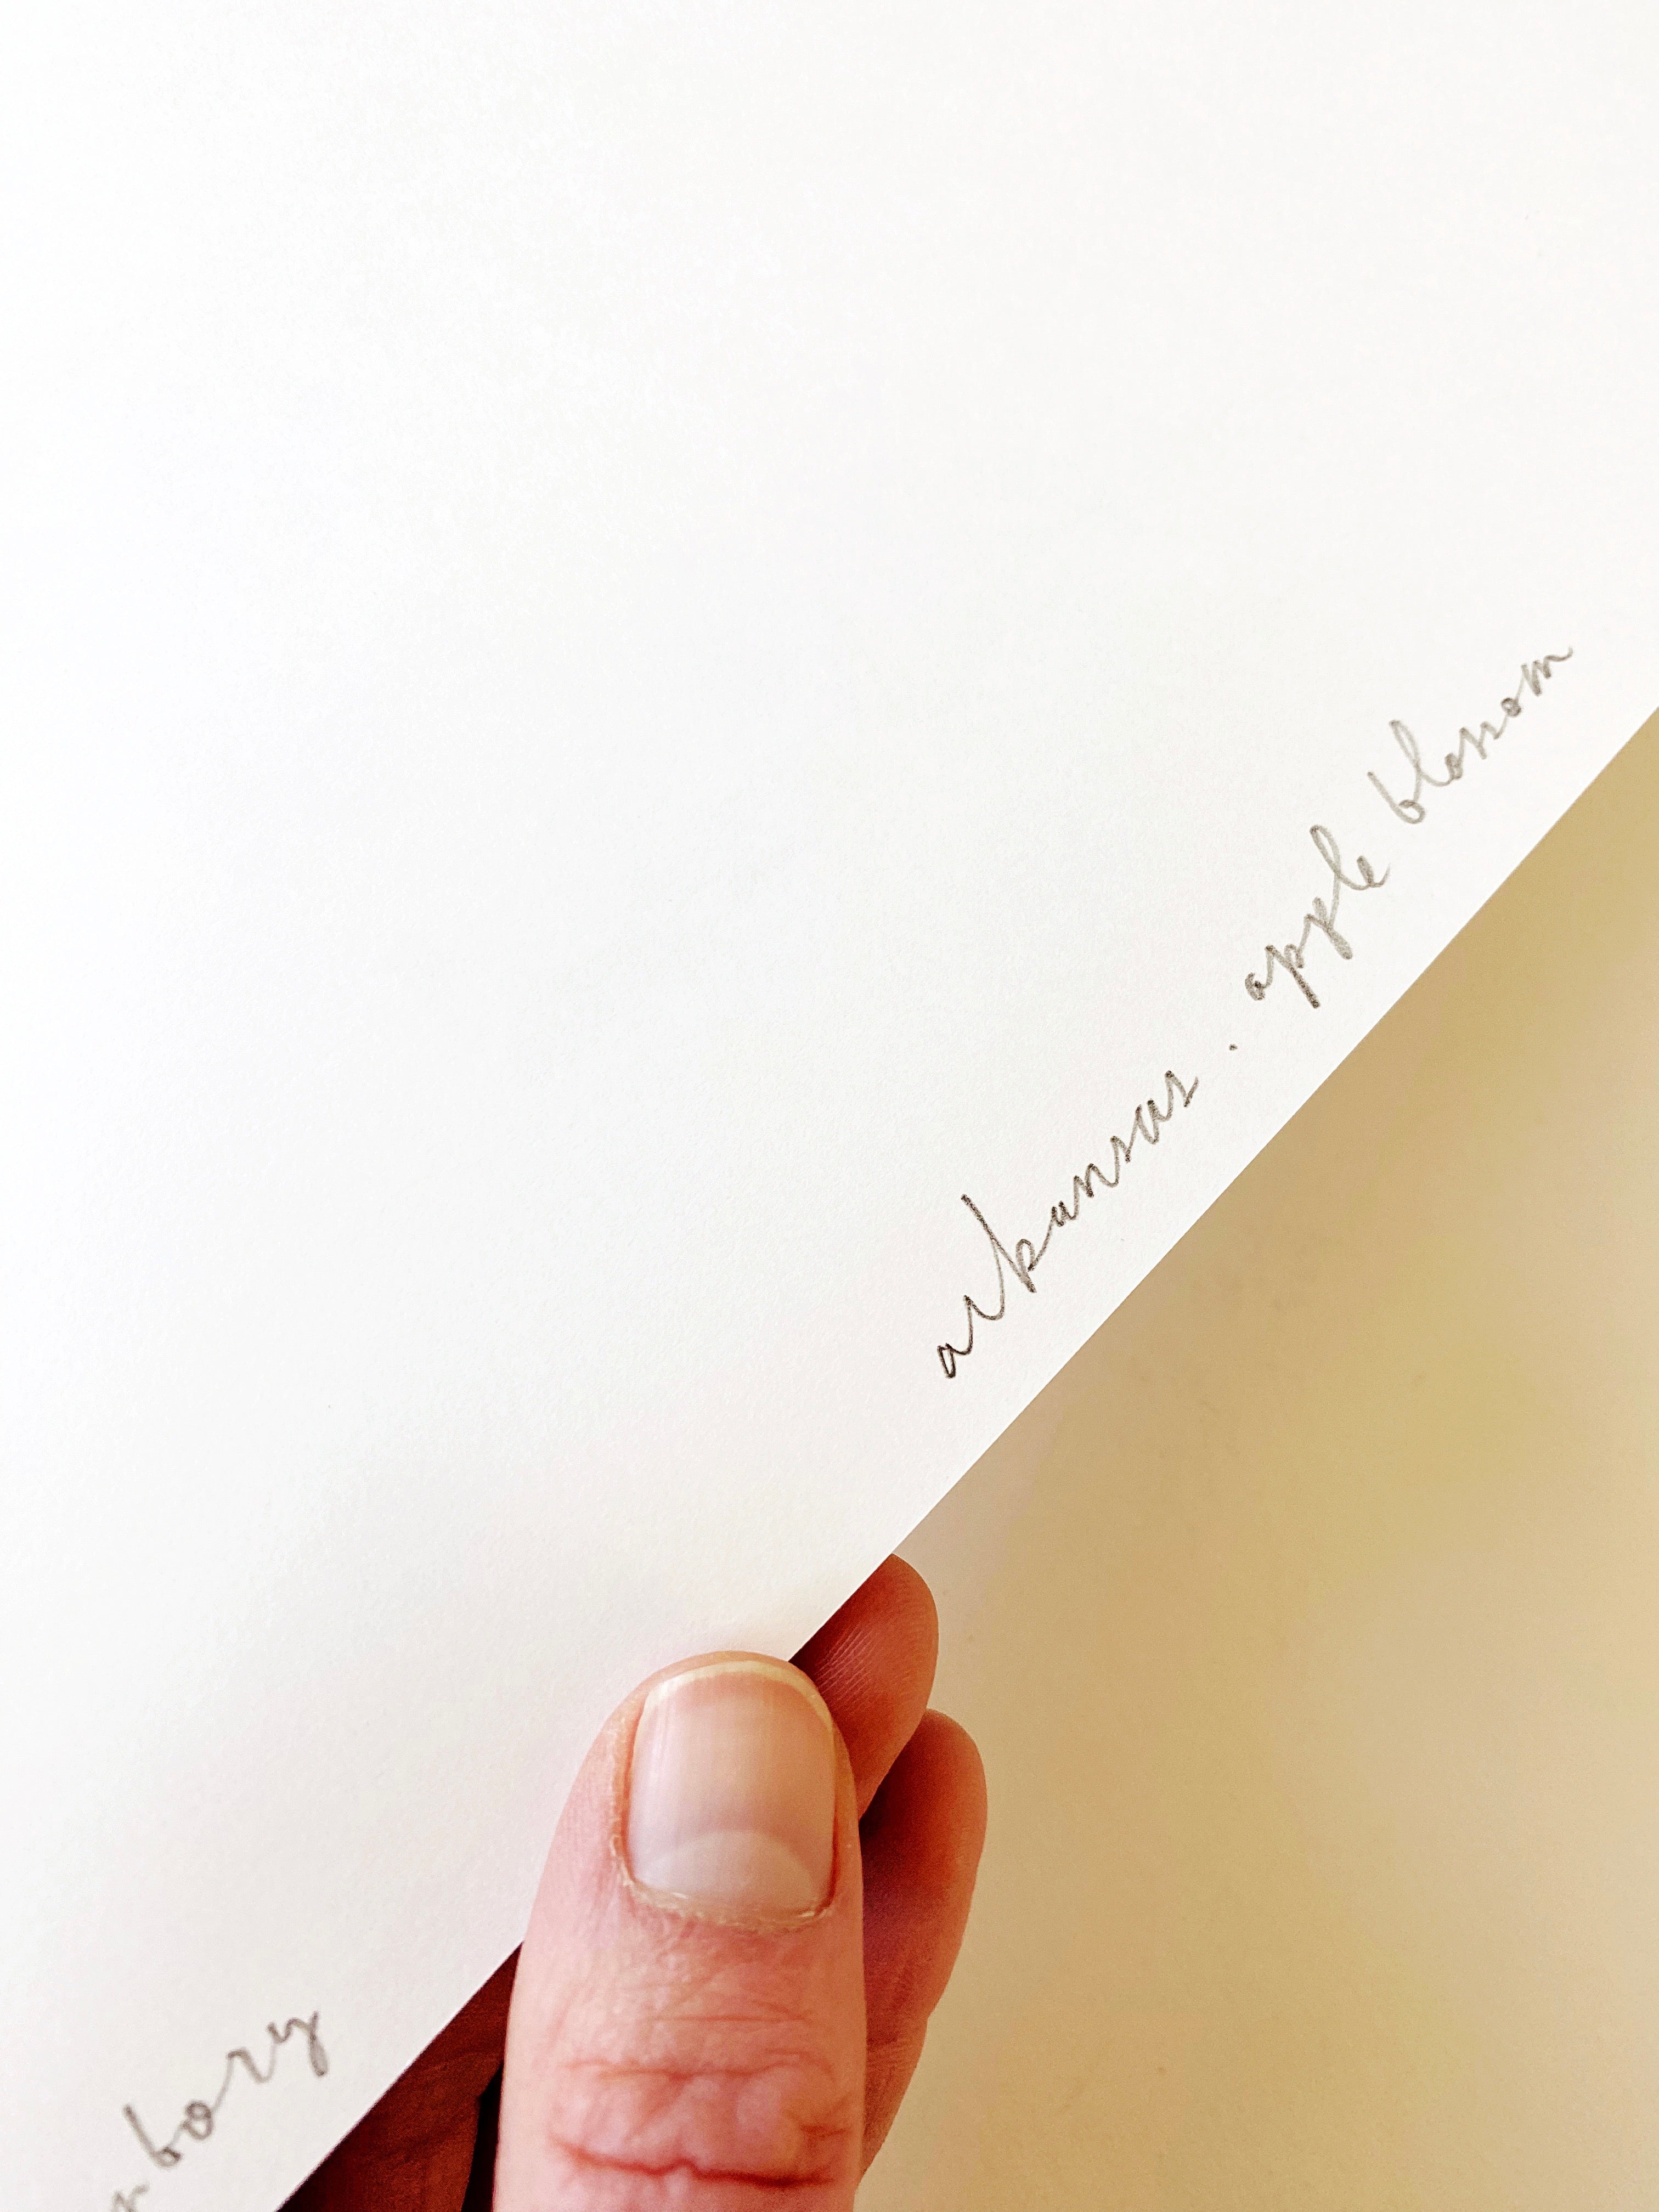 arkansas . apple blossom
bory